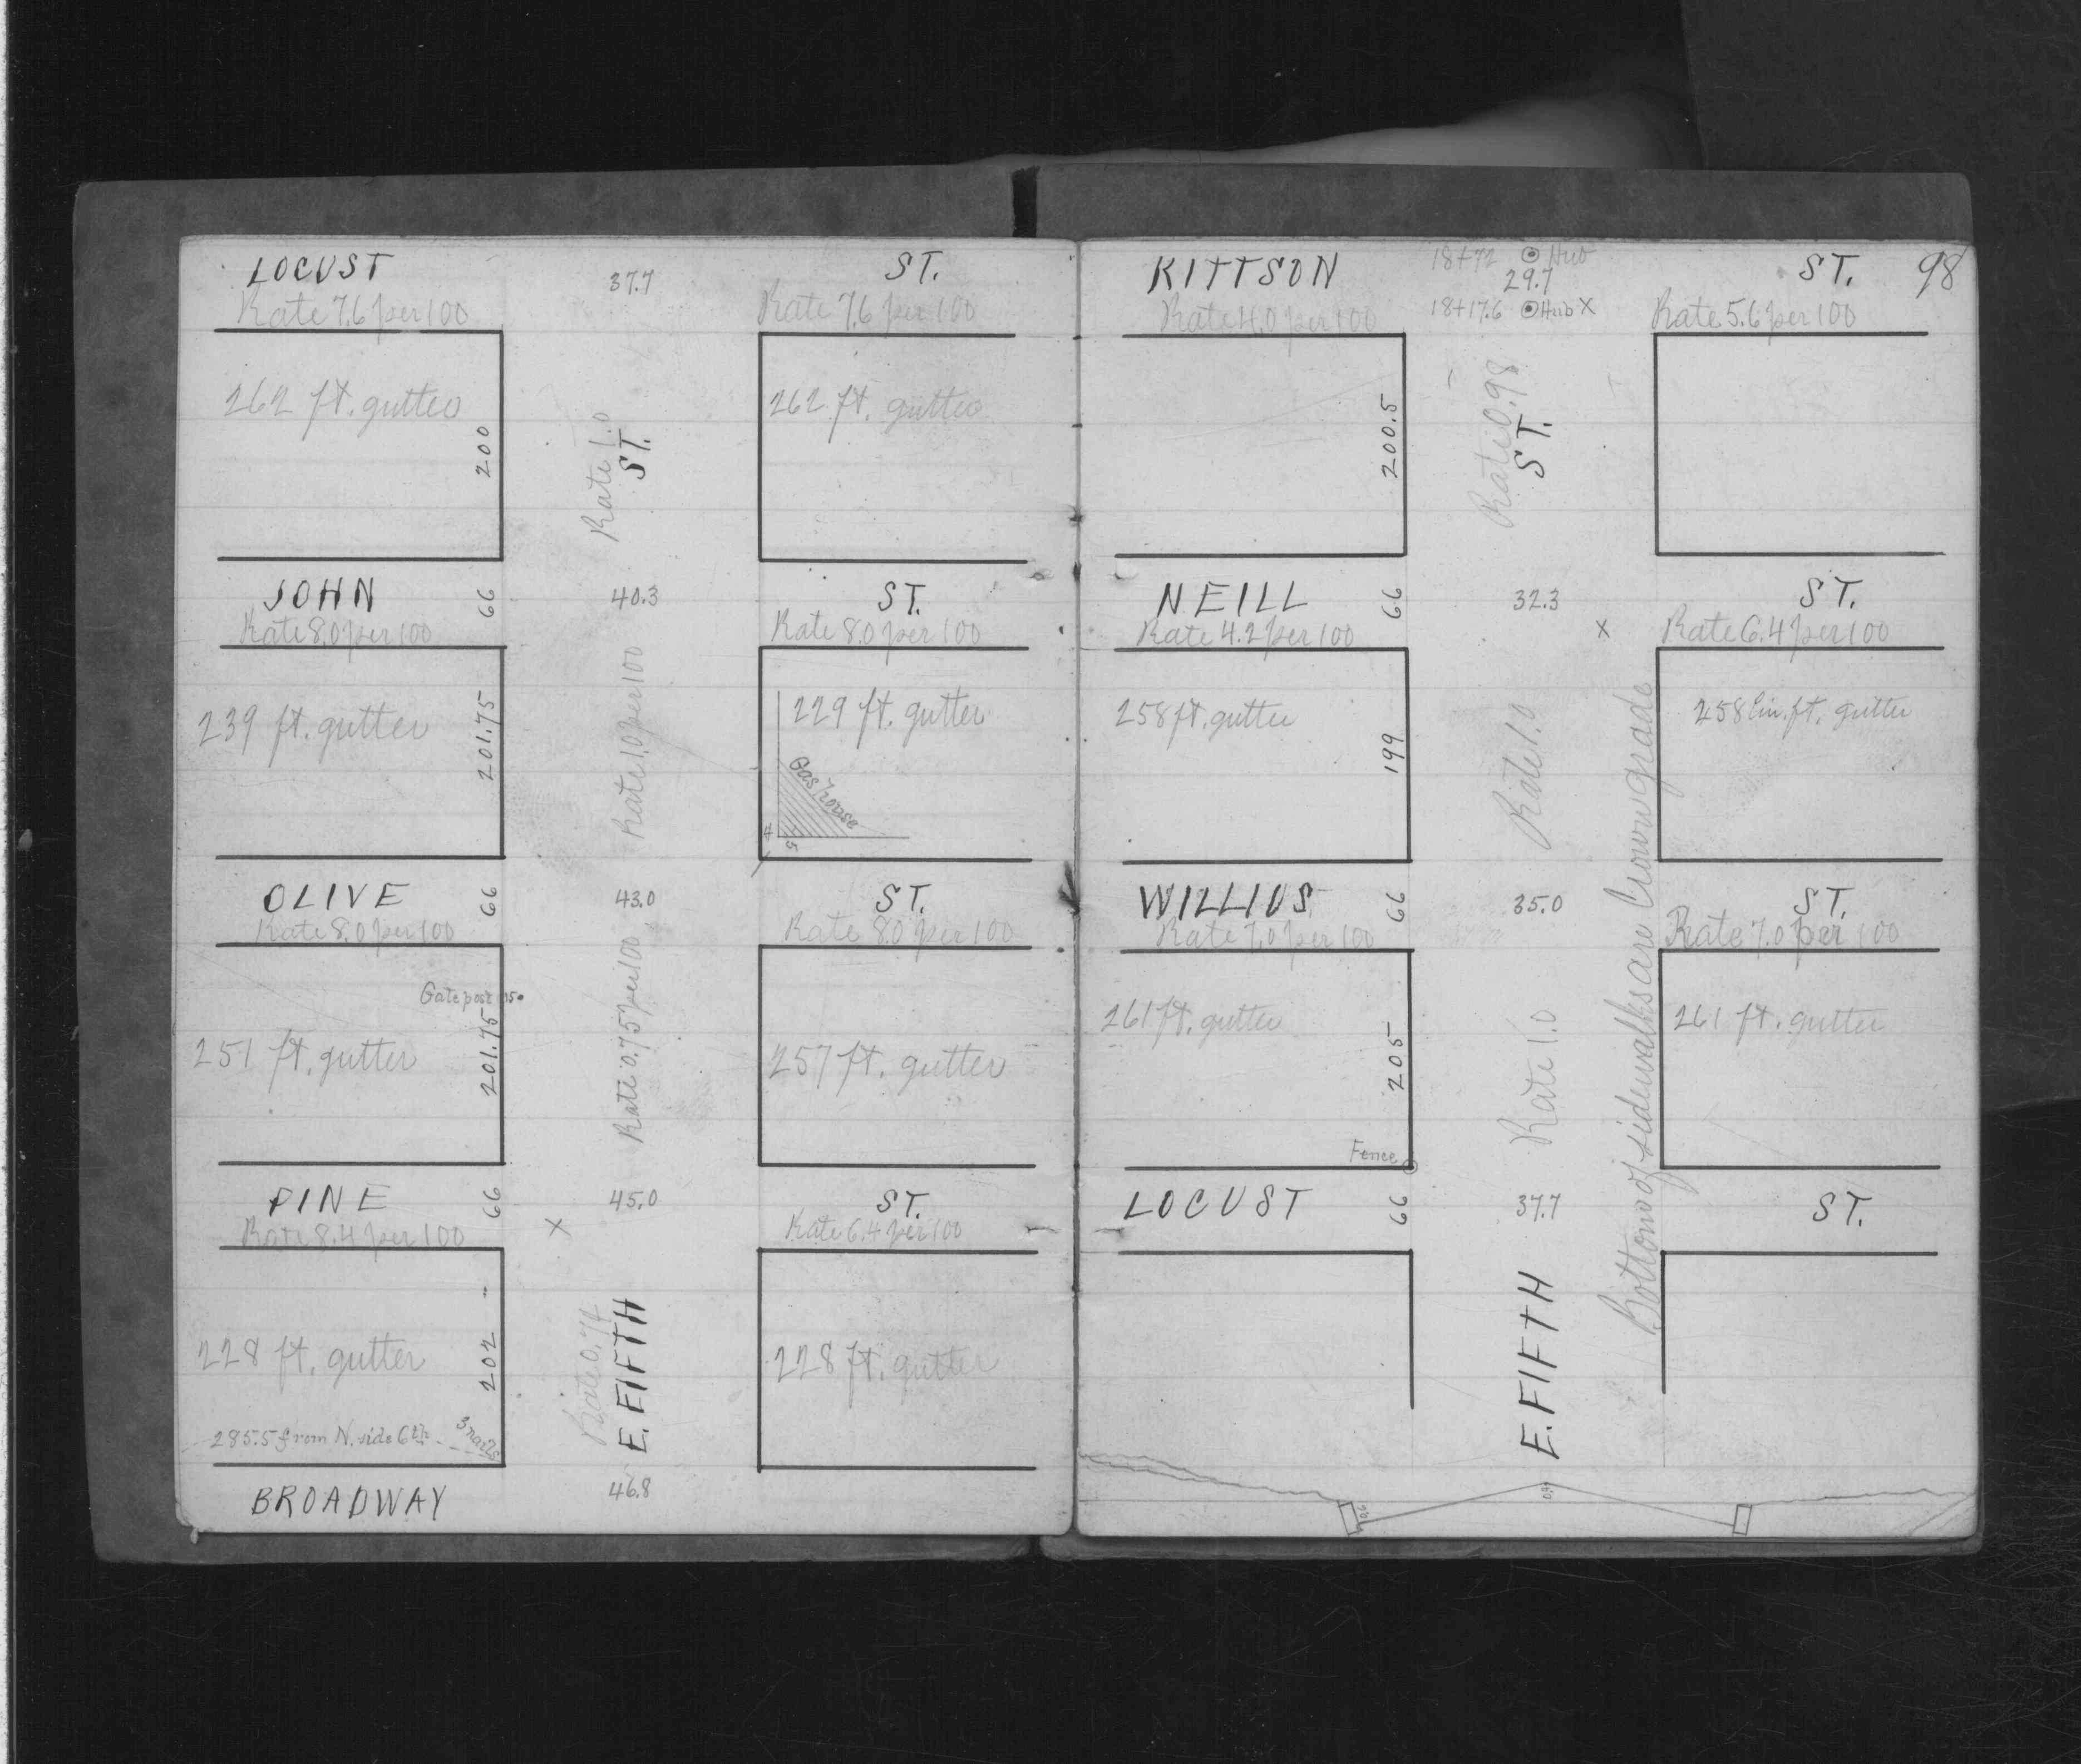 LOCUST 37.7 ST.
Rate 7.6 per 100 Rate 7.6 per 100
262 ft. gutter 262 ft. gutter
200
Rate 1.0
ST.
JOHN 66 40.3 ST.
Rate 8.0 per 100 Rate 8.0 per 100
239 ft. gutter 229 ft. gutter
201.75
Rate 1.0 per 100
Gas house
4
5
OLIVE 66 43.0 ST.
Rate 8.0 per 100 Rate 8.0 per 100
Gate post
251 ft. gutter 257 ft. gutter
201.75
Rate 0.75 per 100
PINE 66 45.0 ST.
Rate 8.4 per 100 x Rate 6.4 per 100
228 ft. gutter 228 ft. gutter
202
Rate 0.74
E. FIFTH
285.5 from N. side 6th 3 nails
BROADWAY 46.8
98
18+72 Hub
KITTSON 29.7 ST.
Rate 4.0 per 100 18+17.6 Hub x Rate 5.6 per 100
200.5
Rate 0.98
ST.
NEILL 66 32.3 ST.
Rate 4.2 per 100 x Rate 6.4 per 100
258 ft. gutter 258 lin. ft. gutter
199
Rate 1.0
Bottom of sidewalks are Crown grade
WILLIUS 66 35.0 ST.
Rate 7.0 per 100 Rate 7.0 per 100
261 ft. gutter 261 ft. gutter
205
Rate 1.0
Fence
LOCUST 66 37.7 ST.
E. FIFTH
0.6